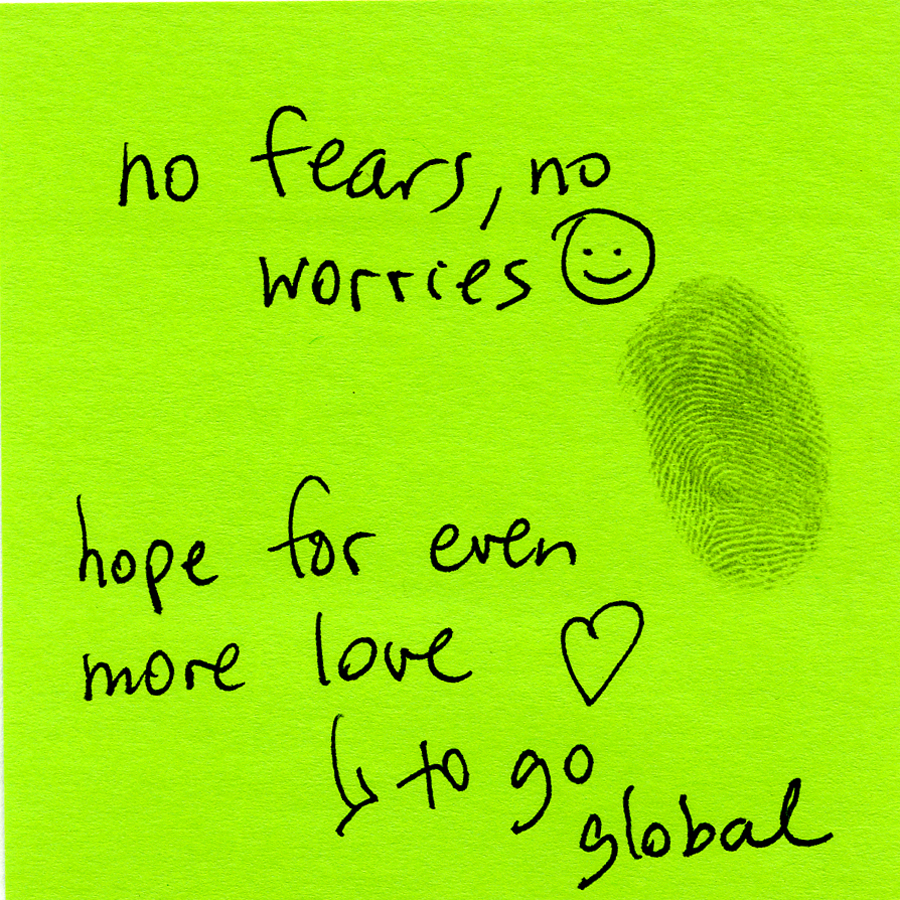 no fears, no
worries
hope for even
more love
to go
global